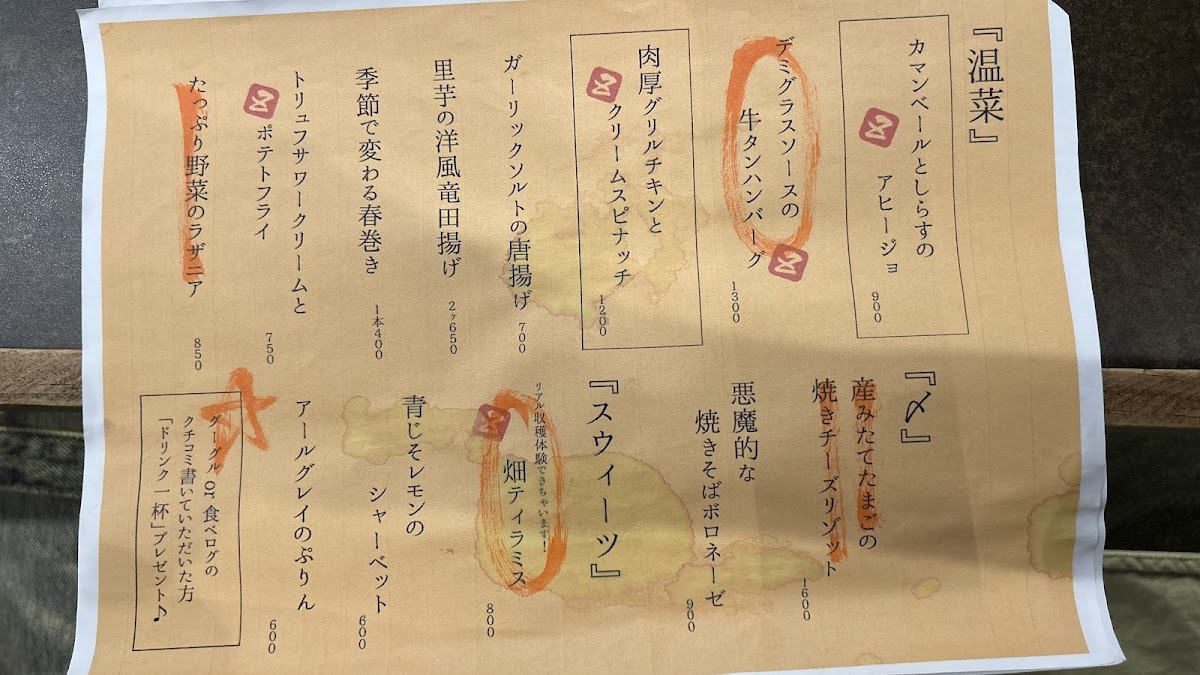 『温菜』
カマンベールとしらすの
アヒージョ
900
デミグラスソースの
牛タンハンバーグ
1300
肉厚グリルチキンと
クリームスピナッチ
1200
ガーリックソルトの唐揚げ
700
里芋の洋風竜田揚げ
2ヶ650
季節で変わる春巻き
1本400
トリュフサワークリームと
ポテトフライ
750
たっぷり野菜のラザニア
850
『〆』
産みたてたまごの
焼きチーズリゾット
1600
悪魔的な
焼きそばボロネーゼ
900
『スウィーツ』
リアル収穫体験できちゃいます!
畑ティラミス
800
青じそレモンの
シャーベット
600
アールグレイのぷりん
600
グーグル or 食べログの
クチコミ書いていただいた方
「ドリンク一杯」プレゼント♪